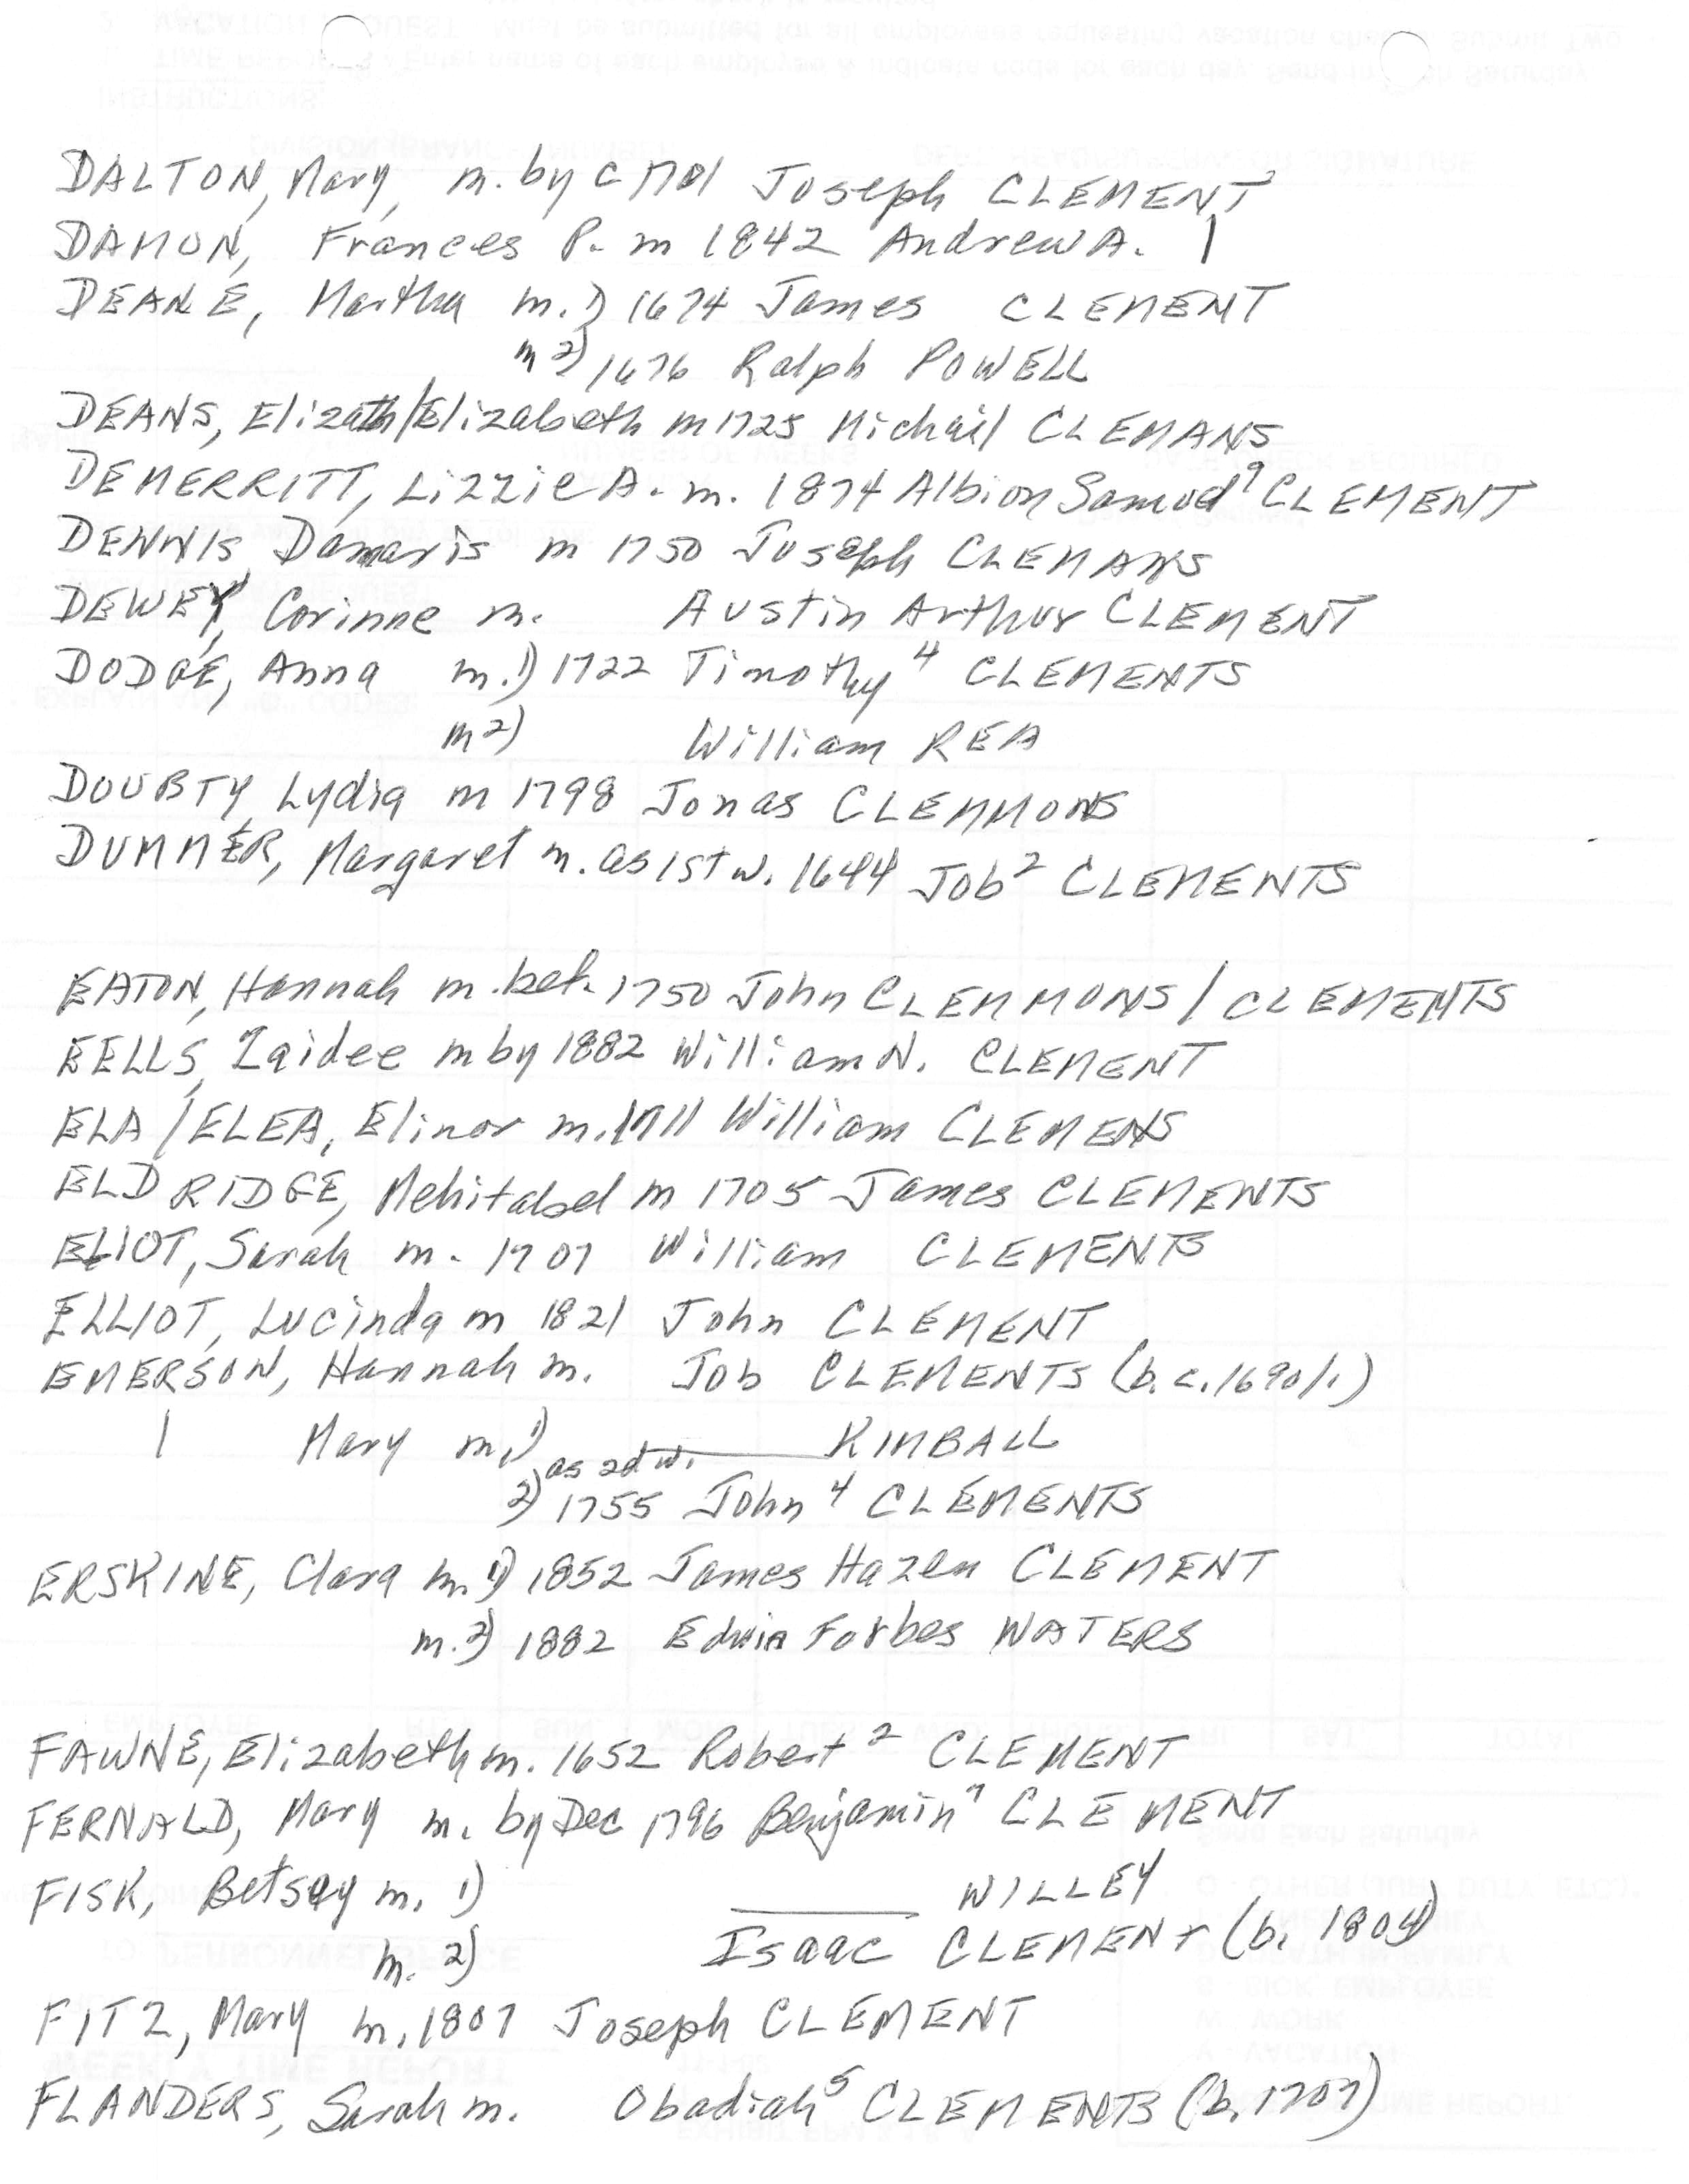 DALTON, Mary, m. by c 1701 Joseph CLEMENT
DAMON, Frances P. m 1842 Andrew A. |
DEANE, Martha m. 1) 1674 James CLEMENT
m 2) 1676 Ralph POWELL
DEANS, Elizath/Elizabeth m 1725 Michail CLEMANS
DEMERRITT, Lizzie A. m. 1874 Albion Samuel⁹ CLEMENT
DENNIS, Damaris m 1750 Joseph CLEMANS
DEWEY, Corinne m. Austin Arthur CLEMENT
DODGE, Anna m. 1) 1722 Timothy⁴ CLEMENTS
m 2) William REA
DOUBTY, Lydia m 1798 Jonas CLEMMONS
DUMMER, Margaret m. as 1st w. 1644 Job² CLEMENTS
EATON, Hannah m. bef. 1750 John CLEMMONS / CLEMENTS
EELLS, Zaidee m by 1882 William N. CLEMENT
ELA / ELEA, Elinor m. 1711 William CLEMENS
ELDRIDGE, Mehitabel m 1705 James CLEMENTS
ELIOT, Sarah m. 1707 William CLEMENTS
ELLIOT, Lucinda m 1821 John CLEMENT
EMERSON, Hannah m. Job CLEMENTS (b. c. 1690/1)
| Mary m. 1) as 2d w. ——— KIMBALL
2) 1755 John⁴ CLEMENTS
ERSKINE, Clara m. 1) 1852 James Hazen CLEMENT
m. 2) 1882 Edwin Forbes WATERS
FAWNE, Elizabeth m. 1652 Robert² CLEMENT
FERNALD, Mary m. by Dec 1796 Benjamin⁷ CLEMENT
FISK, Betsey m. 1) ——— WILLEY
m. 2) Isaac CLEMENT (b. 1804)
FITZ, Mary m. 1807 Joseph CLEMENT
FLANDERS, Sarah m. Obadiah⁵ CLEMENTS (b. 1707)